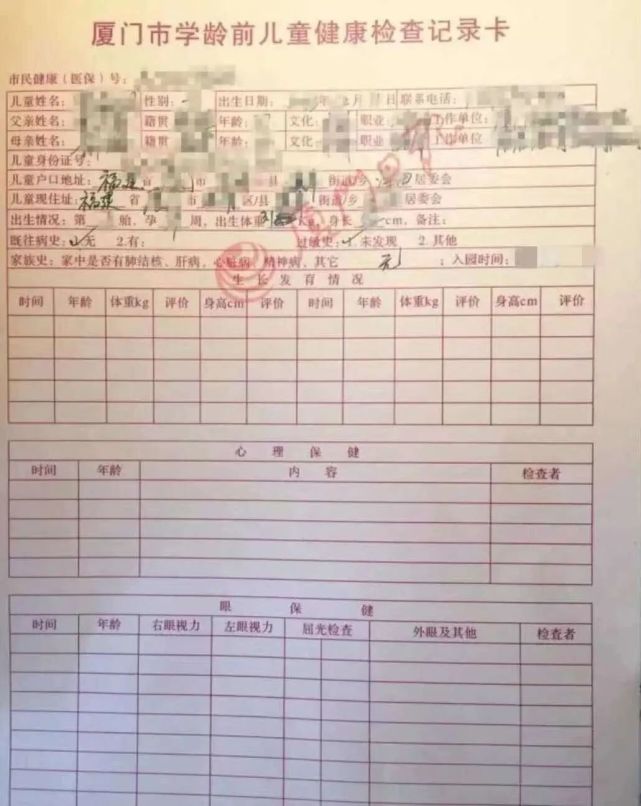 厦门市学龄前儿童健康检查记录卡
市民健康（医保）号：
儿童姓名： 性别： 出生日期： 年 月 日 联系电话：
父亲姓名： 籍贯 年龄： 文化： 职业 工作单位：
母亲姓名： 籍贯 年龄： 文化： 职业 工作单位：
儿童身份证号：
儿童户口地址：福建省 市 区/县 街道/乡 居委会
儿童现住址：福建省 市 区/县 街道/乡 居委会
出生情况：第 胎，孕 周，出生体重 kg，身长 cm，备注：
既往病史：1.无 2.有： 过敏史：1.未发现 2.其他
家族史：家中是否有肺结核、肝病，心脏病，精神病，其它 无 ；入园时间：
生长发育情况
时间 年龄 体重kg 评价 身高cm 评价 时间 年龄 体重kg 评价 身高cm 评价
心理保健
时间 年龄 内容 检查者
眼保健
时间 年龄 右眼视力 左眼视力 屈光检查 外眼及其他 检查者